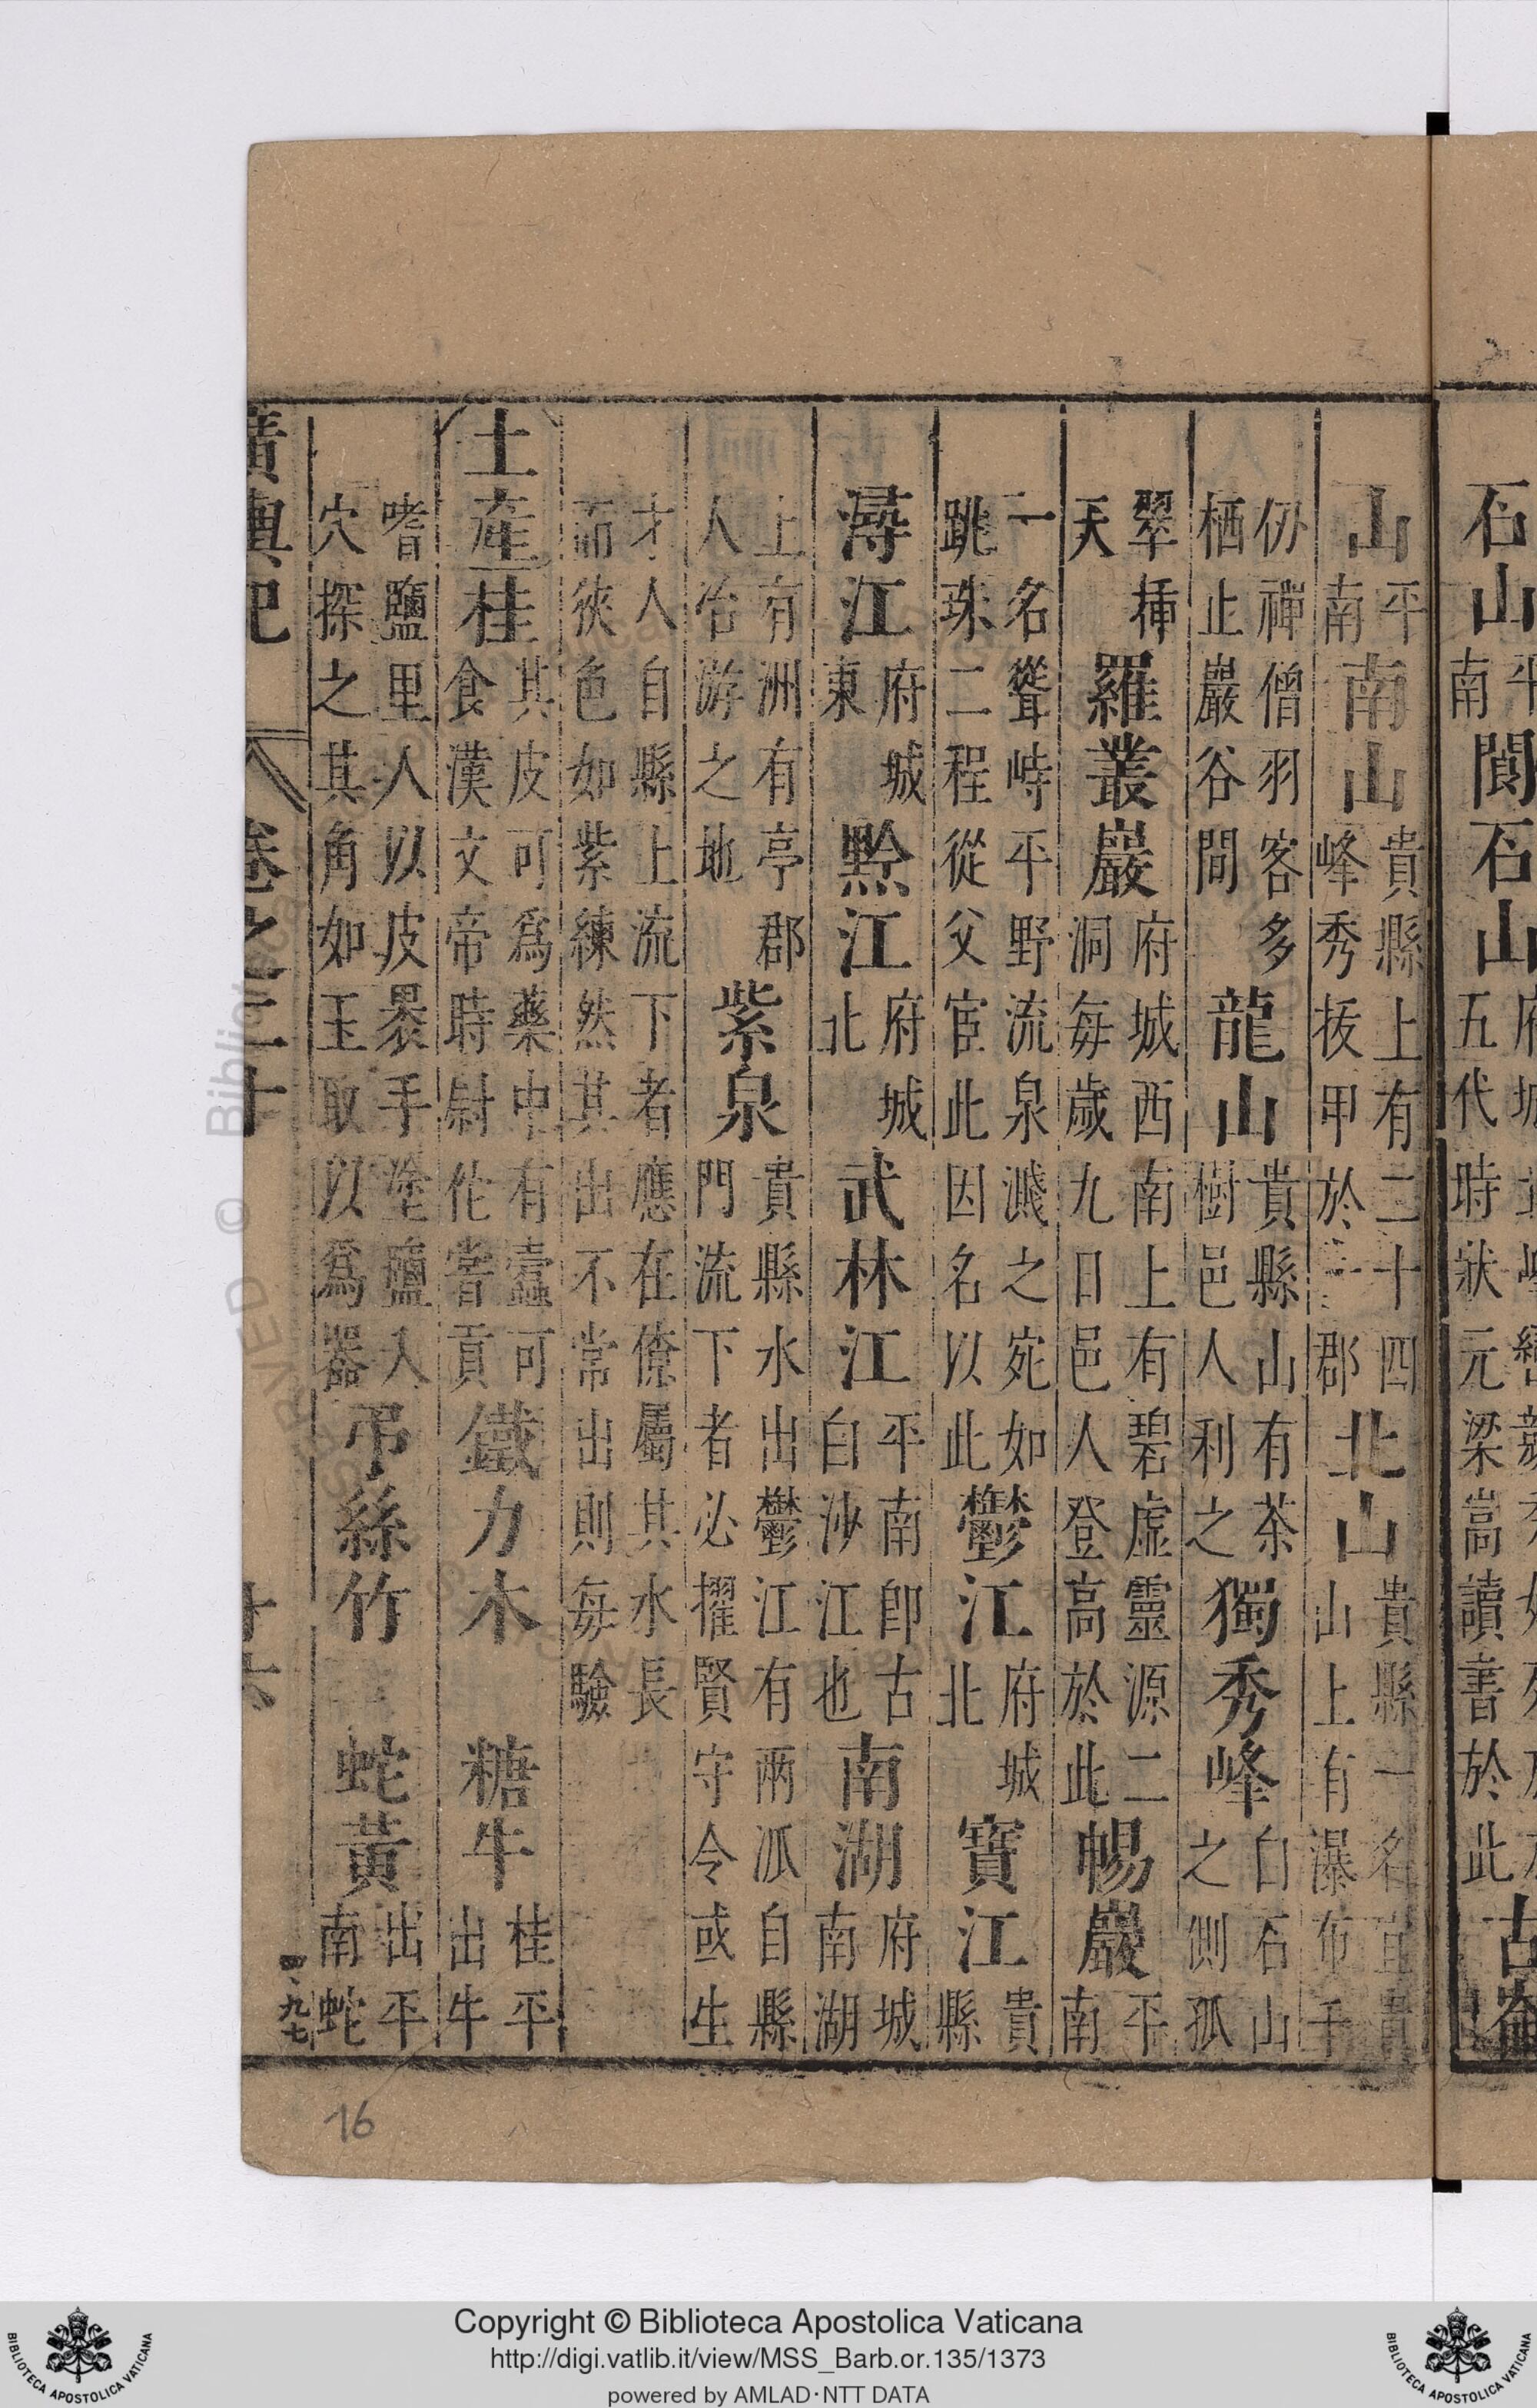 石山南閬石山五代時狀元梁嵩讀書於此古
山平南南山貴縣上有二十四峰秀拔甲於一郡北山貴縣一名宜貴山上有瀑布千
仞禪僧羽客多栖止巖谷間龍山貴縣山有茶樹邑人利之獨秀峰白石山之側孤
翠揷天羅叢巖府城西南上有碧虛靈源二洞每歲九日邑人登高於此暢巖平南
一名聳峙平野流泉濺之宛如跳珠二程從父宦此因名以此鬱江府城北寶江貴縣
潯江府城東黔江府城北武林江平南卽古白沙江也南湖府城南湖
上有洲有亭郡人冶游之地紫泉貴縣水出鬱江有兩派自縣門流下者必擢賢守令或生
才人自縣上流下者應在僚屬其水長而狹色如紫練然其出不常出則每驗
土產桂其皮可爲藥中有蠹可食漢文帝時尉佗嘗貢鐵力木糖牛桂平出牛
嗜鹽里人以皮褁手塗鹽入穴探之其角如玉取以爲器弔絲竹蛇黃出平南蛇
廣輿記 卷之二十 十六
四、九七
16
© Biblioteca Apostolica Vaticana
Copyright © Biblioteca Apostolica Vaticana
http://digi.vatlib.it/view/MSS_Barb.or.135/1373
powered by AMLAD·NTT DATA
BIBLIOTECA APOSTOLICA VATICANA
BIBLIOTECA APOSTOLICA VATICANA